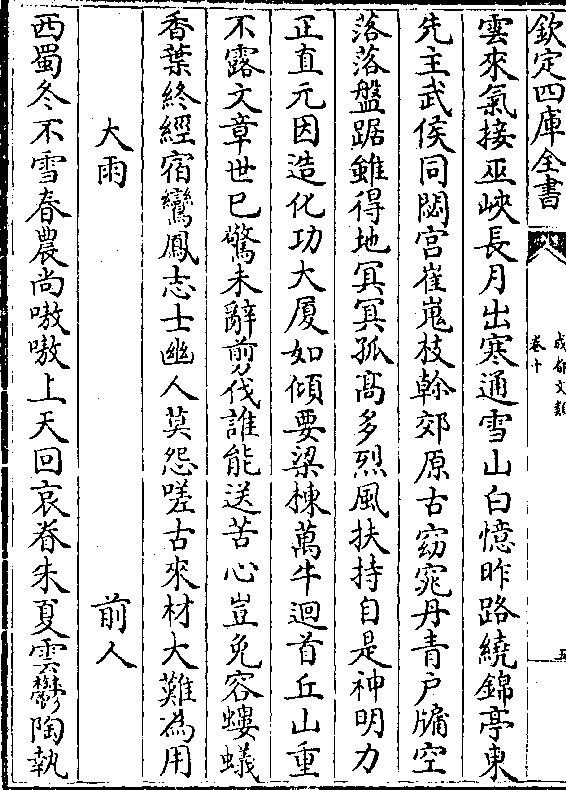 欽定四庫全書
成都文類
卷十
五
雲來氣接巫峽長月出寒通雪山白憶昨路繞錦亭東
先主武侯同閟宫崔嵬枝幹郊原古窈窕丹青户牖空
落落盤踞雖得地冥冥孤髙多烈風扶持自是神明力
正直元因造化功大厦如傾要梁棟萬牛迴首丘山重
不露文章世已驚未辭剪伐誰能送苦心豈免容螻蟻
香葉終經宿鸞鳳志士幽人莫怨嗟古來材大難為用
大雨 前人
西蜀冬不雪春農尚嗷嗷上天回哀眷朱夏雲鬱陶執